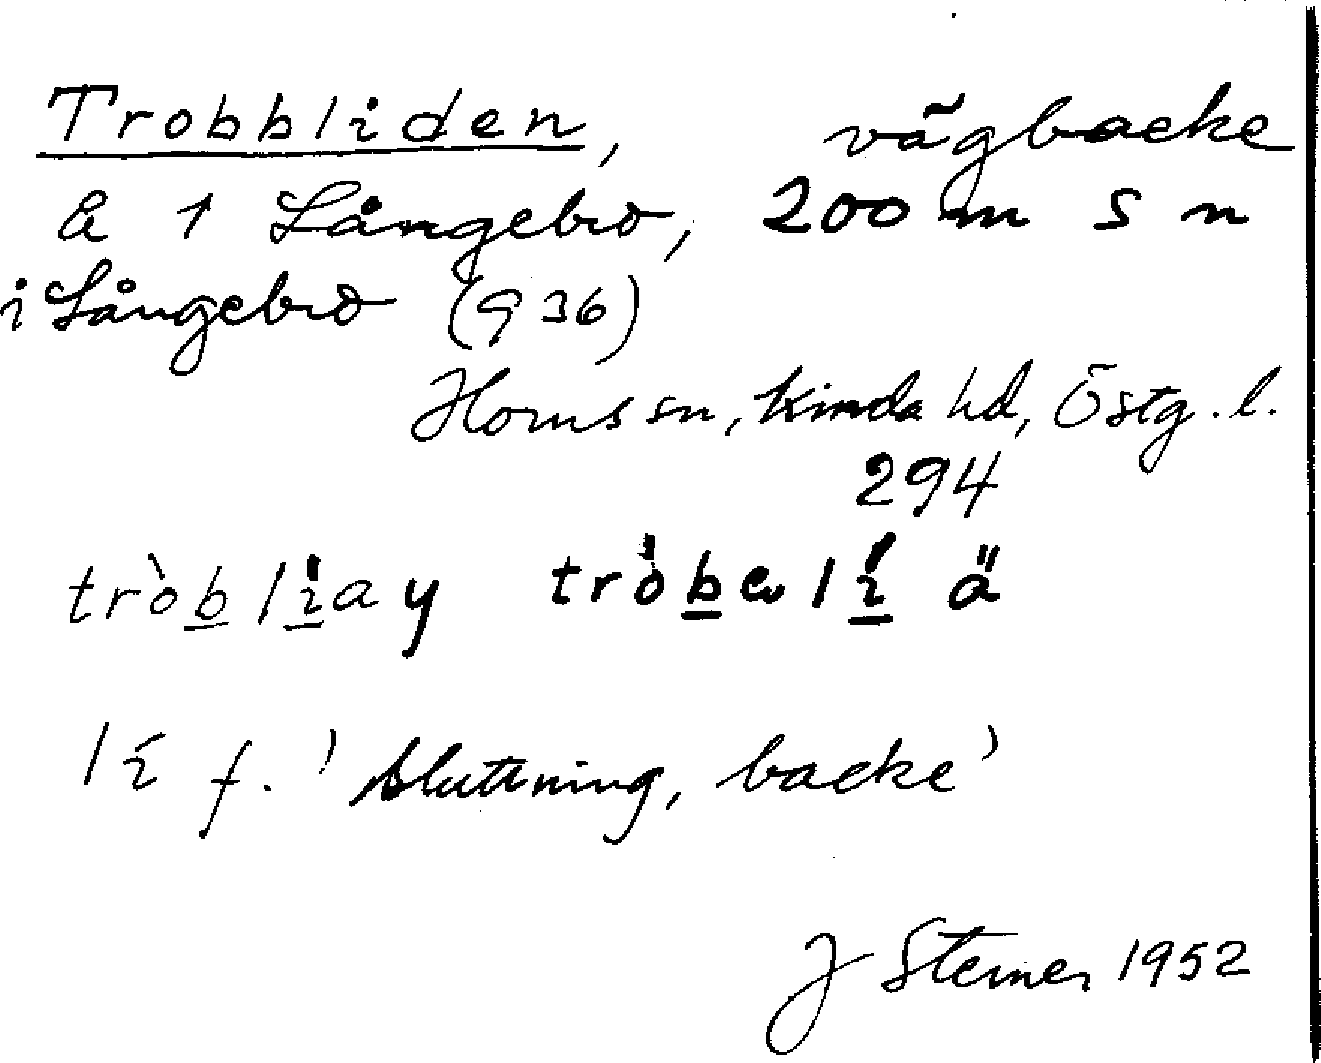 Trobbliden, vägbacke
å 1 Långebro, 200 m S n
i Långebro (9 36)
Horns sn, Kinda hd, Östg. l.
294
tròb líay tròbəlí ä
lí f. 'sluttning, backe'
J Sterner 1952